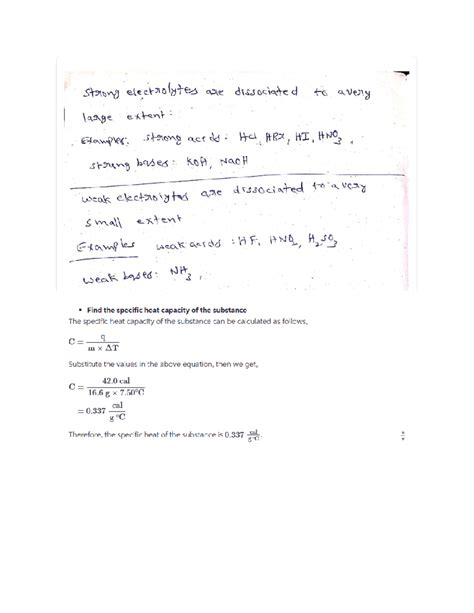 strong electrolytes are dissociated to a very
large extent:
Examples: strong acids: HCl, HBr, HI, HNO3,
strong bases: KOH, NaOH
weak electrolytes are dissociated to a very
small extent
Examples weak acids : HF, HNO2, H2SO3
weak bases: NH3,
• Find the specific heat capacity of the substance
The specific heat capacity of the substance can be calculated as follows,
C = q / m × ΔT
Substitute the values in the above equation, then we get,
C = 42.0 cal / 16.6 g × 7.50°C
= 0.337 cal / g °C
Therefore, the specific heat of the substance is 0.337 cal / g °C.